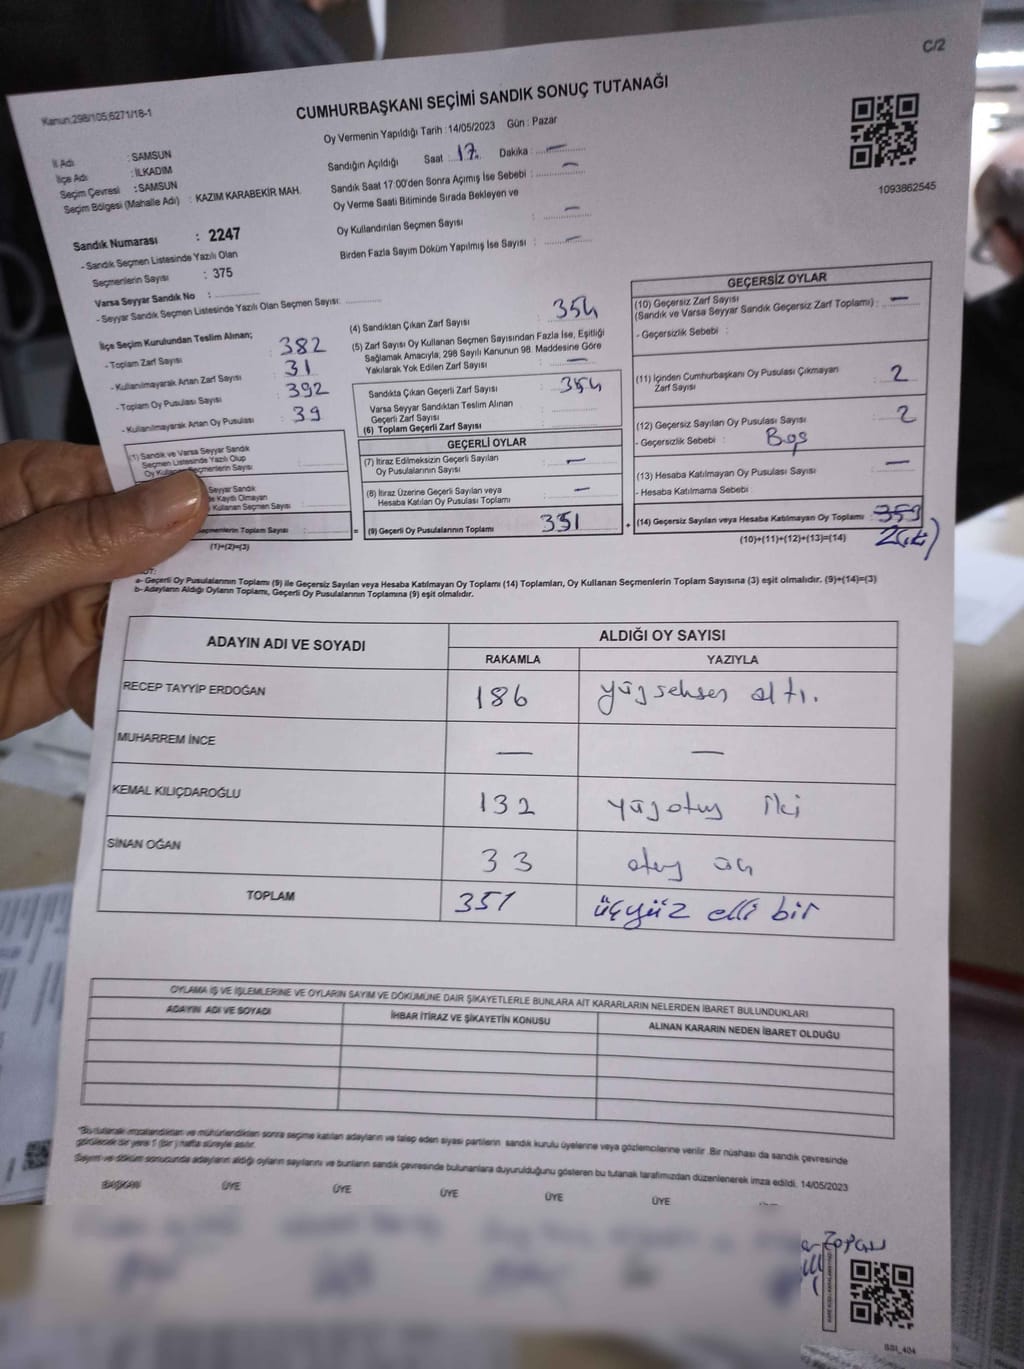 C/2
Kanun:298/105;6271/18-1
CUMHURBAŞKANI SEÇİMİ SANDIK SONUÇ TUTANAĞI
Oy Vermenin Yapıldığı Tarih : 14/05/2023 Gün : Pazar
İl Adı : SAMSUN
İlçe Adı : İLKADIM
Seçim Çevresi : SAMSUN
Seçim Bölgesi (Mahalle Adı) : KAZIM KARABEKİR MAH.
Sandık Numarası : 2247
- Sandık Seçmen Listesinde Yazılı Olan
Seçmenlerin Sayısı : 375
Varsa Seyyar Sandık No :
- Seyyar Sandık Seçmen Listesinde Yazılı Olan Seçmen Sayısı:
Sandığın Açıldığı Saat : 17. Dakika : —
Sandık Saat 17:00'den Sonra Açımış İse Sebebi : —
Oy Verme Saati Bitiminde Sırada Bekleyen ve
Oy Kullandırılan Seçmen Sayısı : —
Birden Fazla Sayım Döküm Yapılmış İse Sayısı : —
1093862545
İlçe Seçim Kurulundan Teslim Alınan;
- Toplam Zarf Sayısı : 382
- Kullanılmayarak Artan Zarf Sayısı : 31
- Toplam Oy Pusulası Sayısı : 392
- Kullanılmayarak Artan Oy Pusulası : 39
(1) Sandık ve Varsa Seyyar Sandık
Seçmen Listesinde Yazılı Olup
Oy Kullanan Seçmenlerin Sayısı :
Seyyar Sandık
Kayıtlı Olmayan
Kullanan Seçmen Sayısı
Seçmenlerin Toplam Sayısı :
(1)+(2)=(3)
(4) Sandıktan Çıkan Zarf Sayısı : 354
(5) Zarf Sayısı Oy Kullanan Seçmen Sayısından Fazla İse, Eşitliği
Sağlamak Amacıyla, 298 Sayılı Kanunun 98. Maddesine Göre
Yakılarak Yok Edilen Zarf Sayısı : —
Sandıkta Çıkan Geçerli Zarf Sayısı : 354
Varsa Seyyar Sandıktan Teslim Alınan
Geçerli Zarf Sayısı :
(6) Toplam Geçerli Zarf Sayısı :
GEÇERLİ OYLAR
(7) İtiraz Edilmeksizin Geçerli Sayılan
Oy Pusulalarının Sayısı : —
(8) İtiraz Üzerine Geçerli Sayılan veya
Hesaba Katılan Oy Pusulası Toplamı : —
= (9) Geçerli Oy Pusulalarının Toplamı : 351 +
GEÇERSİZ OYLAR
(10) Geçersiz Zarf Sayısı
(Sandık ve Varsa Seyyar Sandık Geçersiz Zarf Toplamı) : —
- Geçersizlik Sebebi :
(11) İçinden Cumhurbaşkanı Oy Pusulası Çıkmayan
Zarf Sayısı : 2
(12) Geçersiz Sayılan Oy Pusulası Sayısı : 2
- Geçersizlik Sebebi : Boş
(13) Hesaba Katılmayan Oy Pusulası Sayısı : —
- Hesaba Katılmama Sebebi :
(14) Geçersiz Sayılan veya Hesaba Katılmayan Oy Toplamı : 353
(10)+(11)+(12)+(13)=(14) 2(iki)
NOT:
a- Geçerli Oy Pusulalarının Toplamı (9) ile Geçersiz Sayılan veya Hesaba Katılmayan Oy Toplamı (14) Toplamları, Oy Kullanan Seçmenlerin Toplam Sayısına (3) eşit olmalıdır. (9)+(14)=(3)
b- Adayların Aldığı Oyların Toplamı, Geçerli Oy Pusulalarının Toplamına (9) eşit olmalıdır.
ADAYIN ADI VE SOYADI ALDIĞI OY SAYISI
RAKAMLA YAZIYLA
RECEP TAYYİP ERDOĞAN 186 yüzseksen altı.
MUHARREM İNCE — —
KEMAL KILIÇDAROĞLU 132 yüzotuz iki
SİNAN OĞAN 33 otuz üç
TOPLAM 351 üçyüz elli bir
OYLAMA İŞ VE İŞLEMLERİNE VE OYLARIN SAYIM VE DÖKÜMÜNE DAİR ŞİKAYETLERLE BUNLARA AİT KARARLARIN NELERDEN İBARET BULUNDUKLARI
ADAYIN ADI VE SOYADI İHBAR İTİRAZ VE ŞİKAYETİN KONUSU ALINAN KARARIN NEDEN İBARET OLDUĞU
*Bu tutanak imzalandıktan ve mühürlendikten sonra seçime katılan adayların ve talep eden siyasi partilerin sandık kurulu üyelerine veya gözlemcilerine verilir. Bir nüshası da sandık çevresinde
görülecek bir yere 1 (bir) hafta süreyle asılır.
Sayım ve döküm sonucunda adayların aldığı oyların sayılarını ve bunların sandık çevresinde bulunanlara duyurulduğunu gösteren bu tutanak tarafımızdan düzenlenerek imza edildi. 14/05/2023
BAŞKAN ÜYE ÜYE ÜYE ÜYE ÜYE